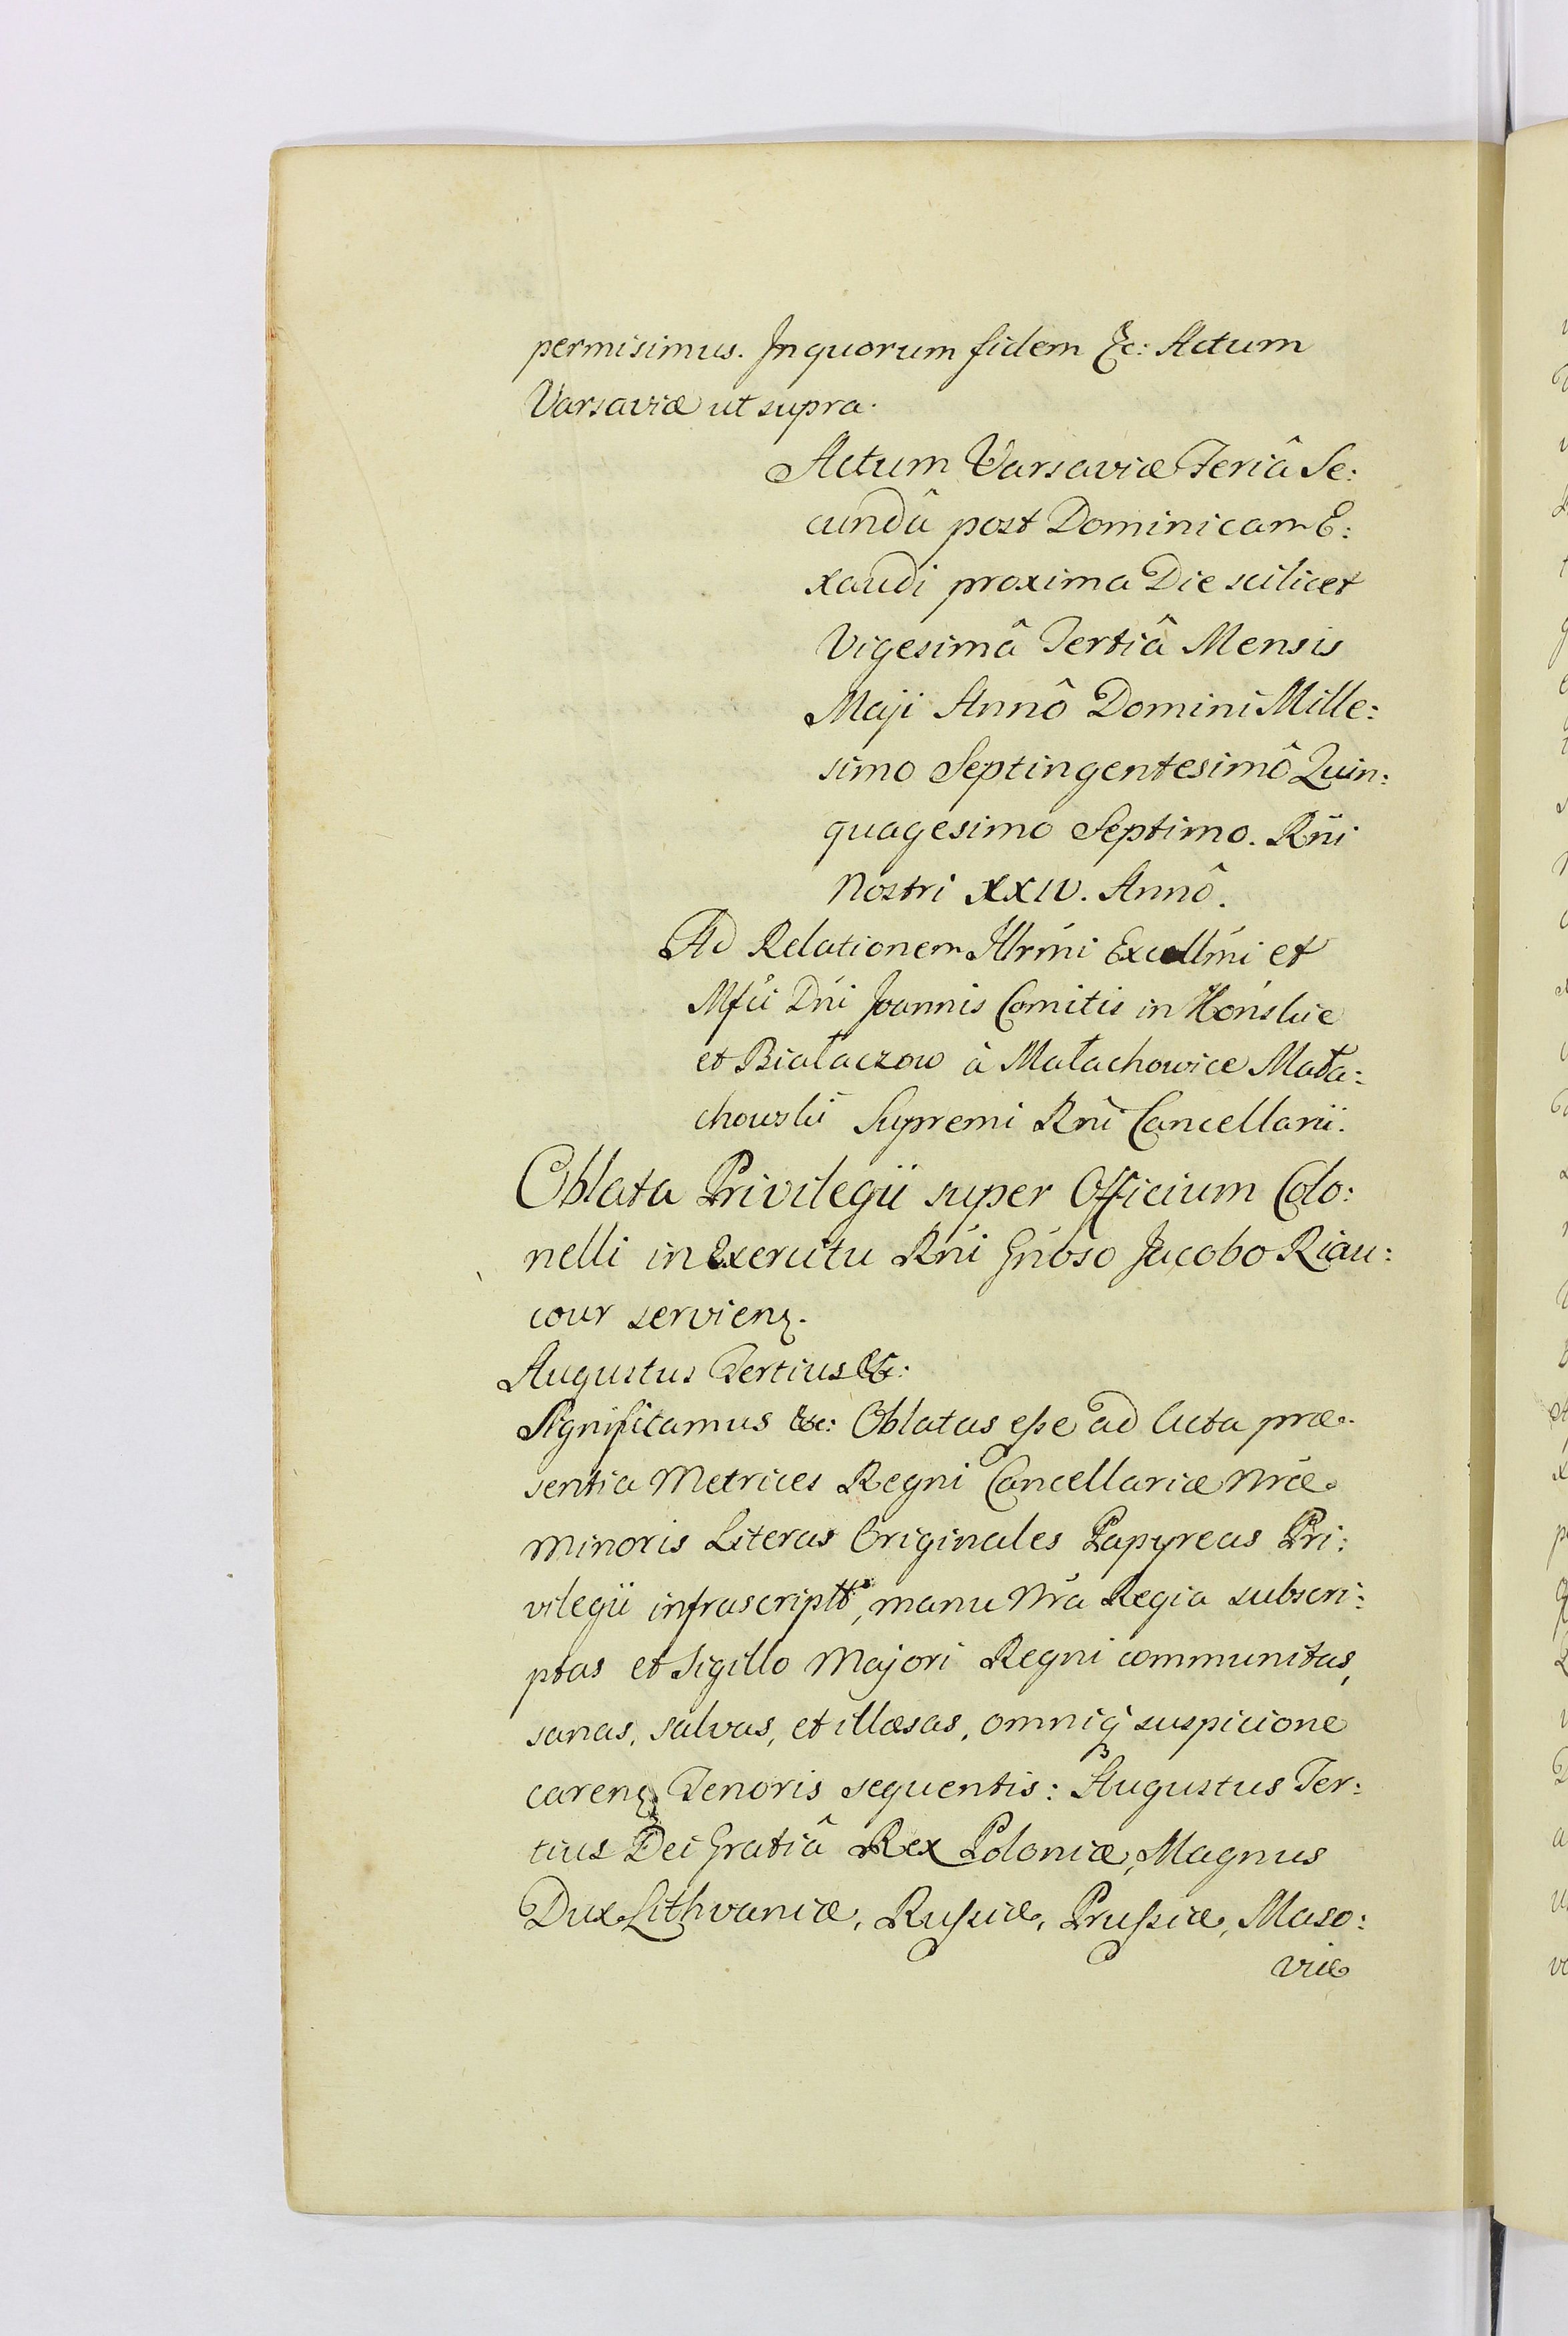 permisimus. In quorum fidem &c: Actum
Varsaviæ ut supra.
Actum Varsaviæ Feriâ Se:
cundâ post Dominicam E:
xaudi proxima Die scilicet
Vigesimâ Tertiâ Mensis
Maji Annô Domini Mille:
simo Septingentesimô Quin:
quagesimo Septimo. Rñi
Nostri XXIV. Annô.
Ad Relationem Illrmi Excellmi et
Mfci Dni Joannis Comitis in Końskie
et Białaczow à Małachowice Mała:
chowski Supremi Rni Cancellarii.
Oblata Privilegii super Officium Colo:
nelli in Exercitu Rni Gnboso Jacobo Riau:
cour servienꝫ.
Augustus Tertius &c:
Significamus &c: Oblatas esse ad Acta præ:
sentia Metrices Regni Cancellariæ Nræ
Minoris Literas Originales Papyreas Pri:
vilegii infrascriptt, manu Nra Regia subscri:
ptas et Sigillo Majori Regni communitas,
sanas, salvas, et illæsas, omniqꝫ suspicione
carenꝫ Tenoris sequentis: Augustus Ter:
tius Dei Gratiâ Rex Poloniæ, Magnus
Dux Lithvaniæ, Russiæ, Prussiæ, Maso:
viæ